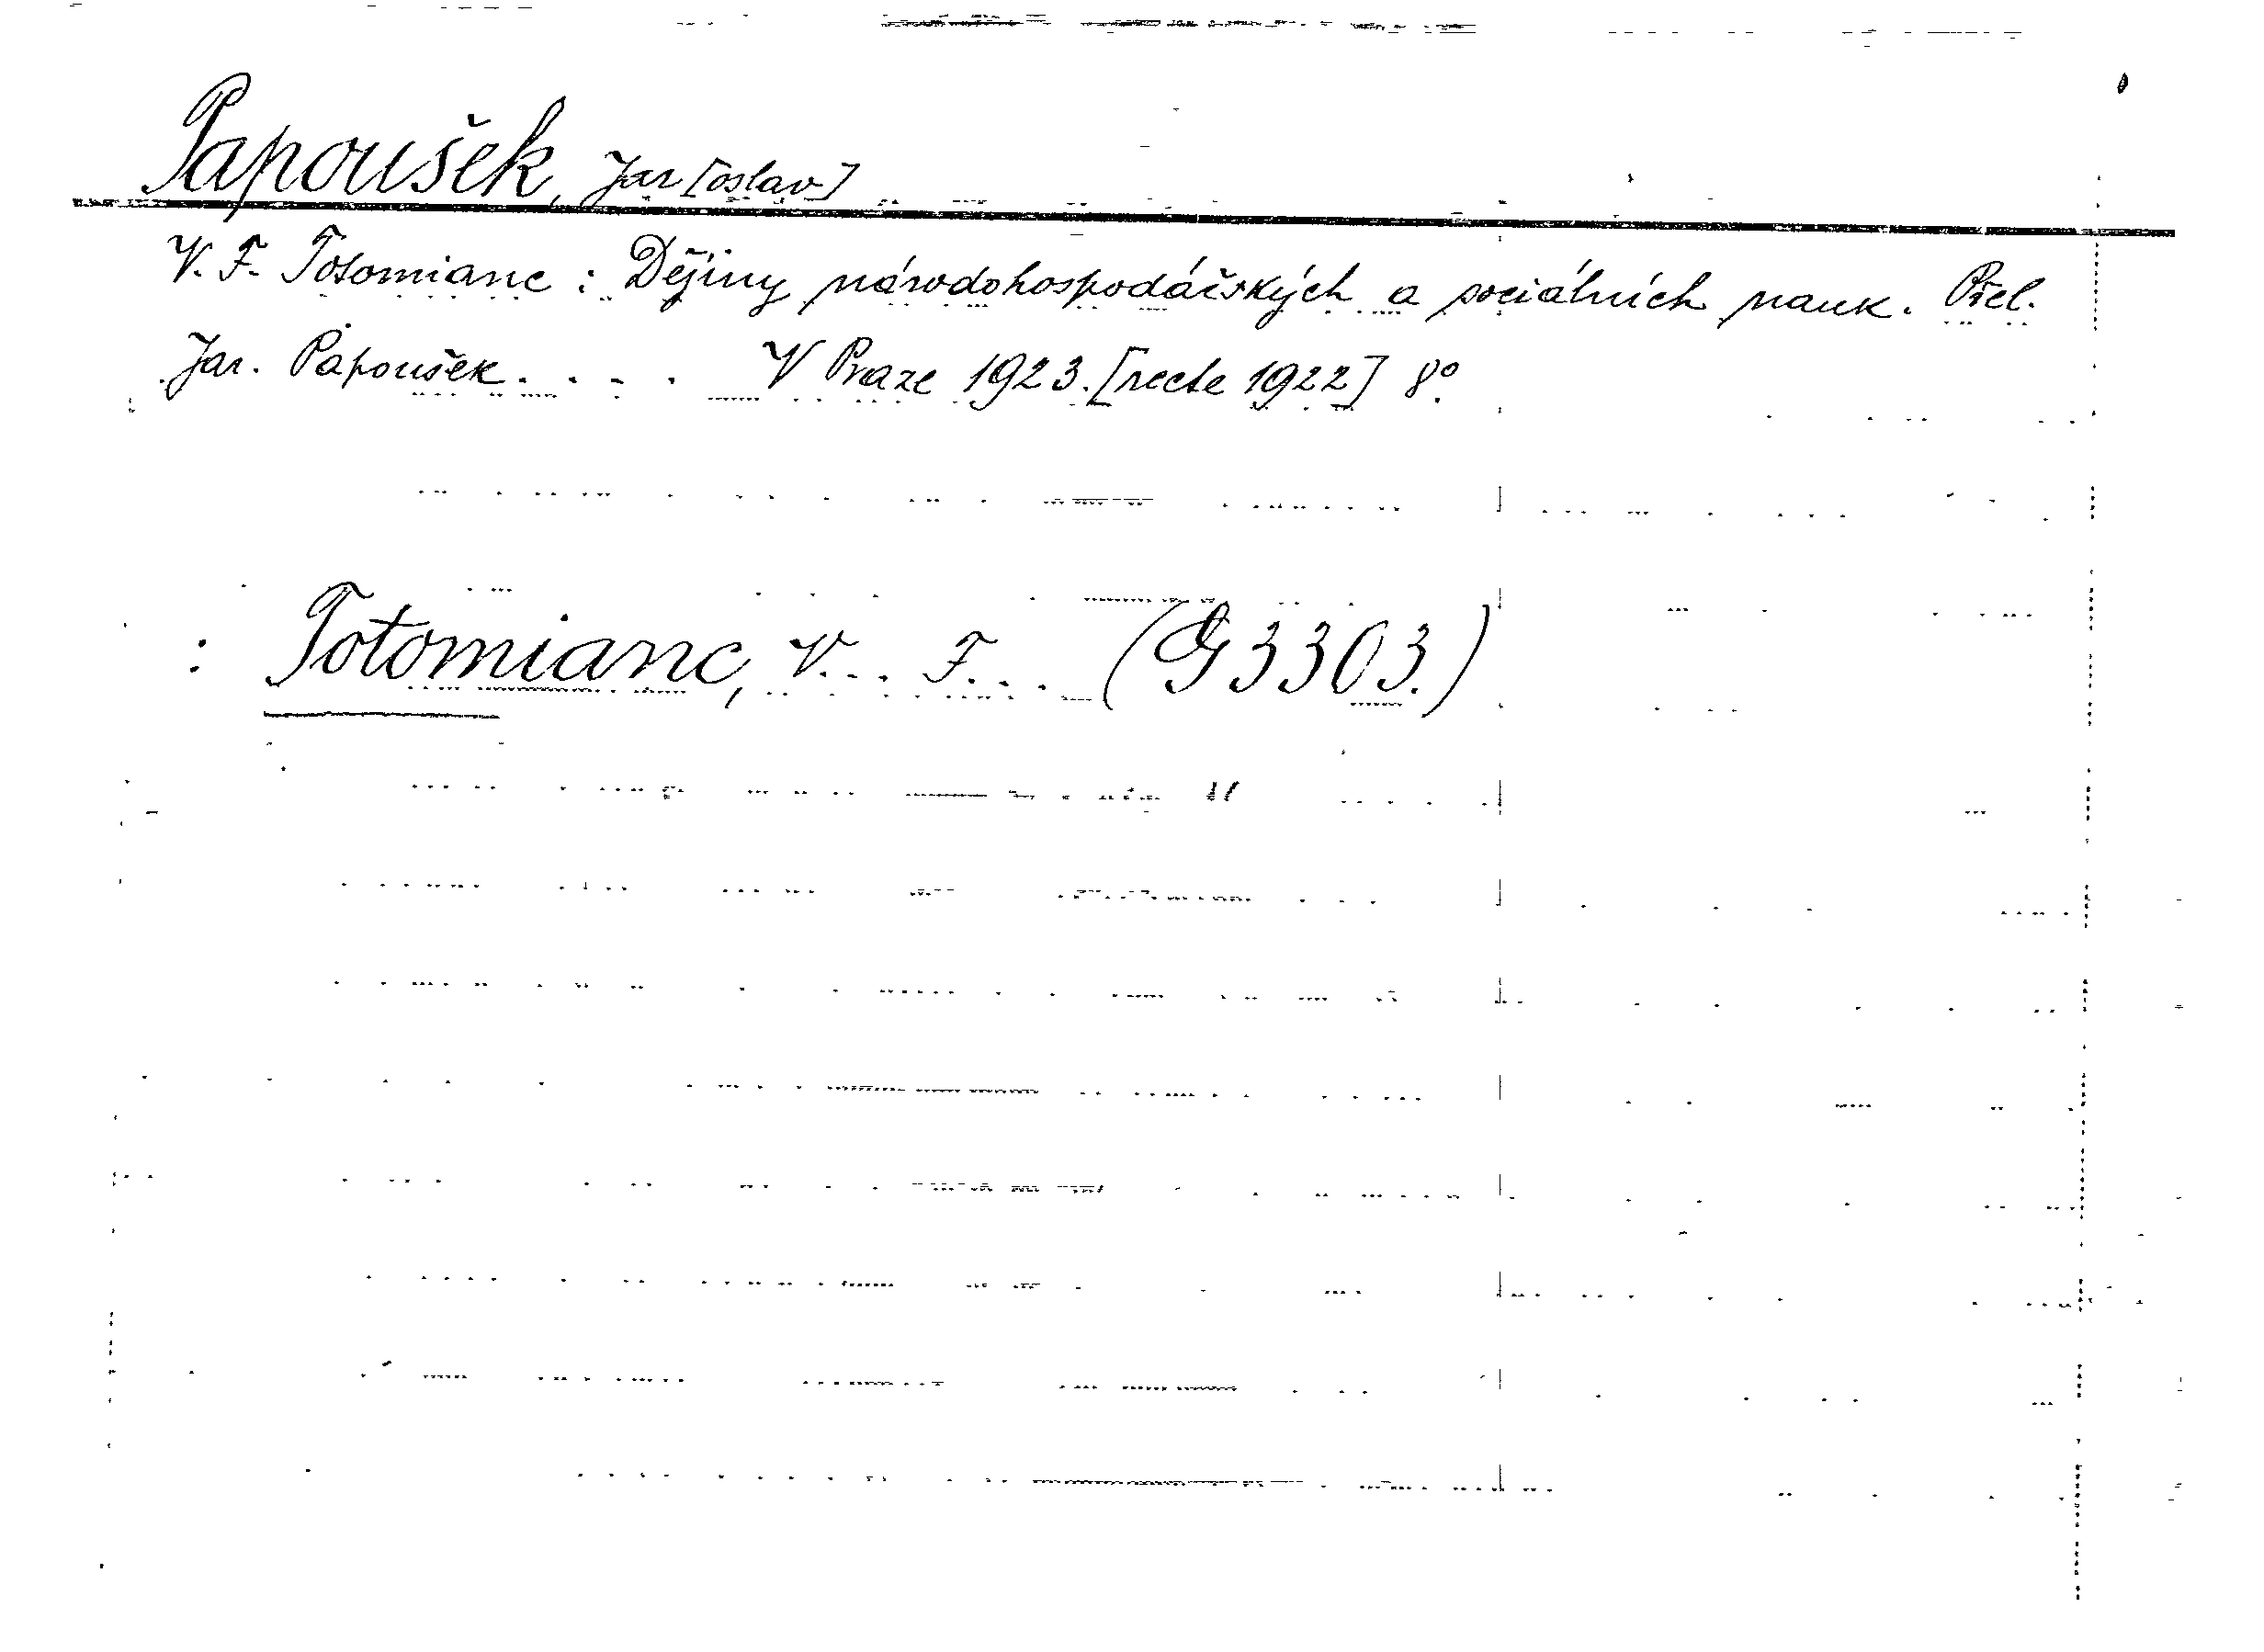 Papoušek, Jar[oslav]
V. F. Totomianc : Dějiny národohospodářských a sociálních nauk. Přel.
Jar. Papoušek. . . . V Praze 1923. [recte 1922] 8°.
: Totomianc, V... F... (G 3303.)